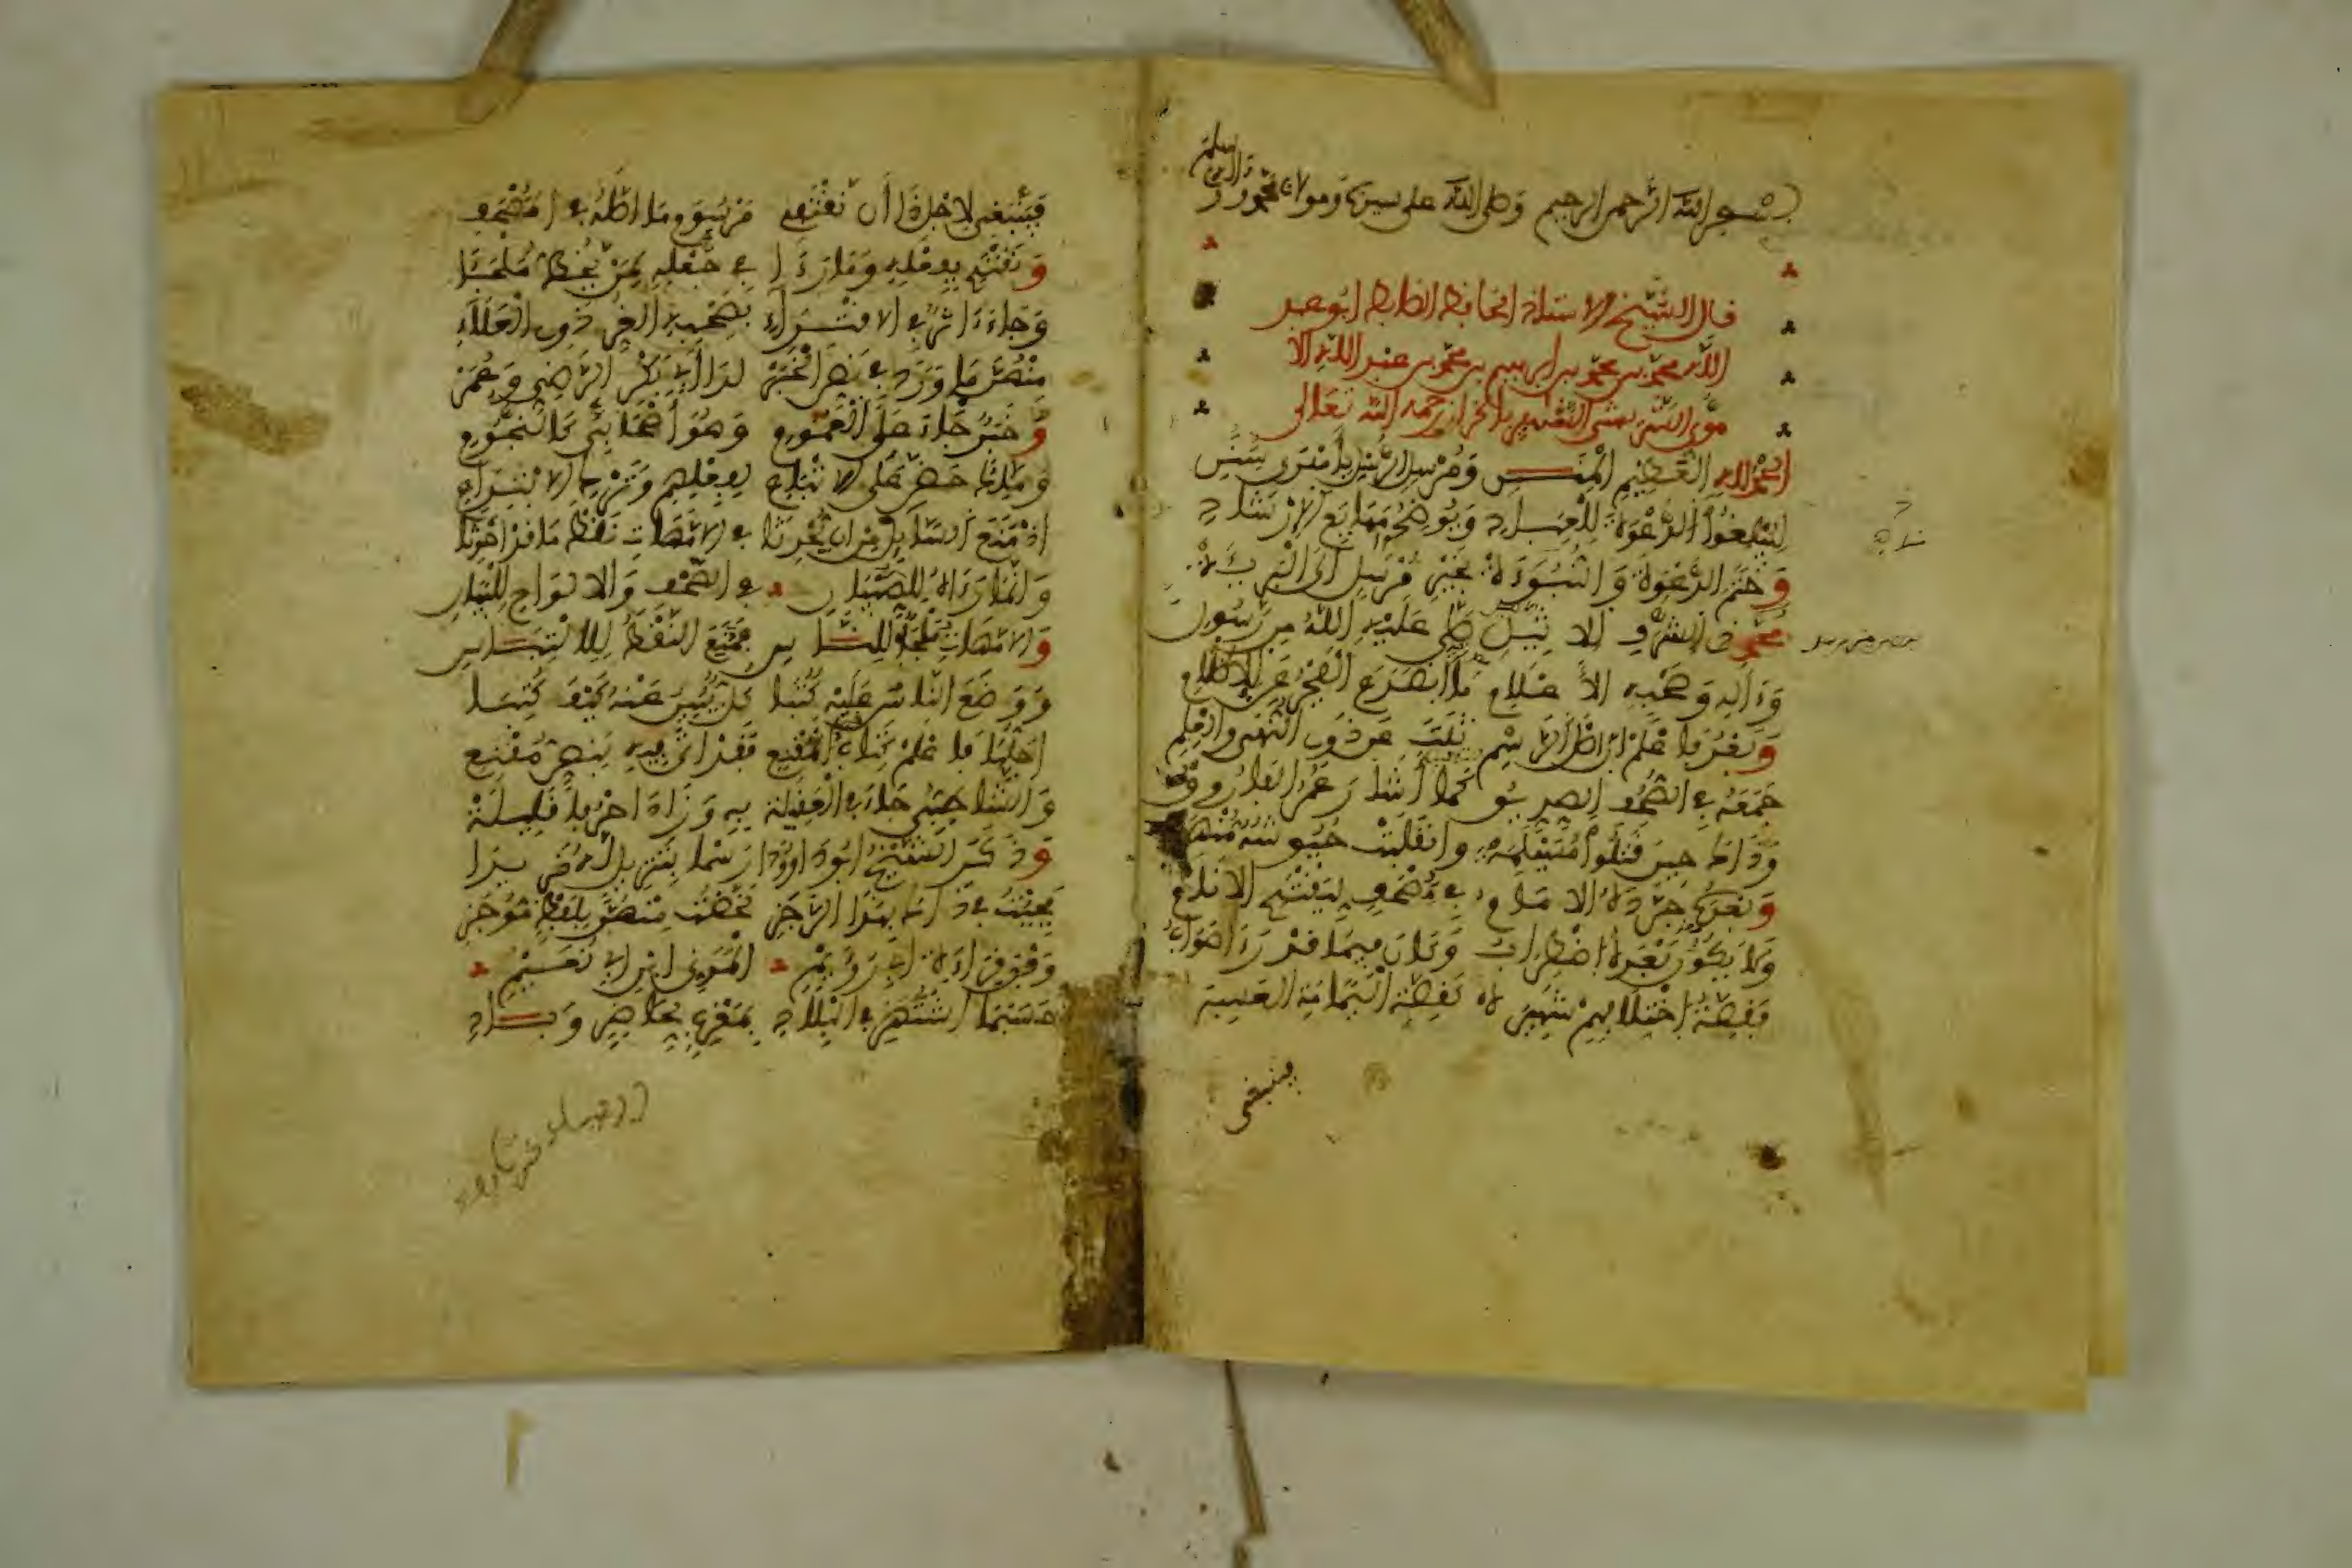 بسم الله الرحمن الرحيم وصلى الله على سيدنا ومولانا محمد وآله وسلم
قال الشيخ الاستاذ الحافظ الضابط ابو عبد
الله محمد بن محمد بن ابراهيم بن محمد بن عبد الله الا
موي الشريشي الشهير بالخراز رحمه الله تعالى
الحمد لله العظيم المنن ومرسل الرسل بأهدى سنن
ليبلغوا الدعوة للعباد ويوضحوا مهايع الإرشاد
وختم الدعوة والنبوءة بخير مرسل إلى البريئة
محمد ذي الشرف الاثيل صلى عليه الله من رسول
وءاله وصحبه الأعلام ما انصدع الفجر عن الإظلام
وبعد فاعلم أن أصل الرسم ثبت عن ذوي النهى والعلم
جمعه في الصحف الصديق كما أشار عمر الفاروق
وذاك حين قتلوا مسيلمة وانقلبت جيوشه منهزمة
وبعده جرده الامام في مصحف ليقتدي الانام
ولا يكون بعده اضطراب وكان فيما قد رءا صواب
فقصة اختلافهم شهيرة كقصة اليمامة العسيرة
فينبغي
فينبغي لاجل ذا أن نقتفي مرسوم ما اصله في المصحف
ونقتدي بفعله وما رءا في جعله لمن يخط ملجئا
وجاء ءاثار في الاقتداء بصحبه الغر ذوي العلاء
منهن ما ورد في نص الخبر لدا أبي بكر الرضي وعمر
وخبر جاء على العموم وهو أصحابي كالنجوم
ومالك حض على الاتباع لفعلهم وترك الابتداع
اذ منع السائل من ان يحدثا في الامهات نقط ما قد احدثا
وانما رءاه للصبيان في الصحف والالواح للبيان
والامهات ملجأ للناس فمنع النقط للالتباس
ووضع الناس عليه كتبا كل يبين عنه كيف كتبا
اجلها فاعلم كتاب المقنع فقد اتى فيه بنص مقنع
والشاطبي جاء في العقيلة به وزاد احرفا قليلة
وذكر الشيخ ابو داوودا رسما بتنزيل له مزيدا
فجئت في ذاك بهذا الرجز لخصت منهن بلفظ موجز
وفق قراءة ابي رؤيم المدني ابن ابي نعيم
حسبما اشتهر في البلاد بمغرب لحاضر وباد